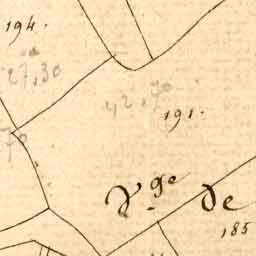 194.
27,30
42,70
191.
70
de
185